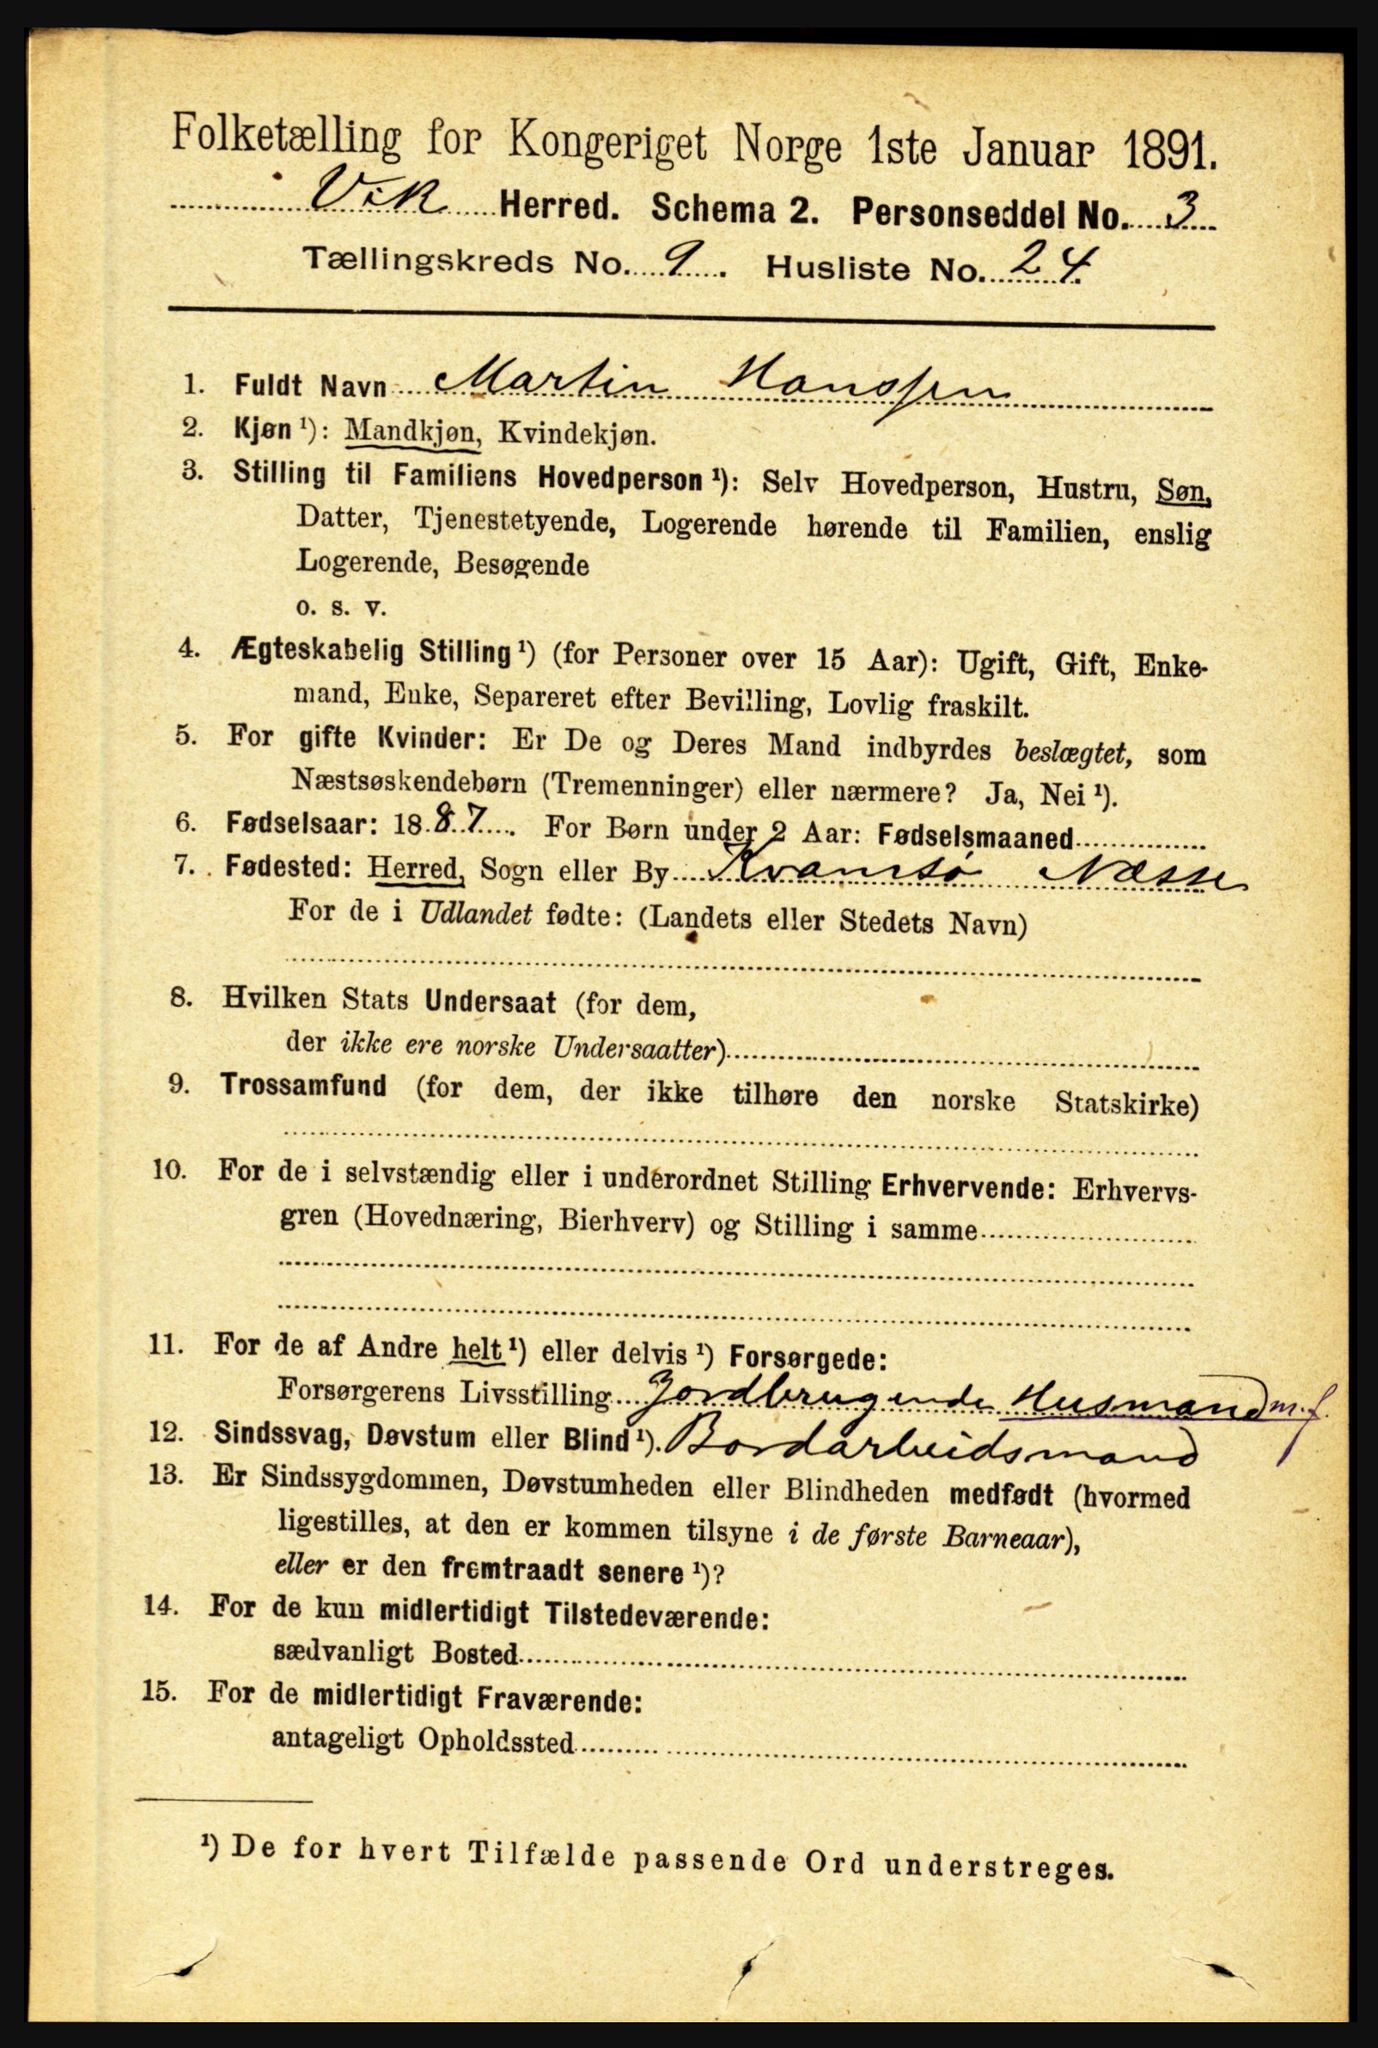 Folketælling for Kongeriget Norge 1ste Januar 1891.
Vik Herred. Schema 2. Personseddel No. 3
Tællingskreds No. 9. Husliste No. 24.
1. Fuldt Navn Martin Hanssen
2. Kjøn ¹): Mandkjøn, Kvindekjøn.
3. Stilling til Familiens Hovedperson ¹): Selv Hovedperson, Hustru, Søn,
Datter, Tjenestetyende, Logerende hørende til Familien, enslig
Logerende, Besøgende
o. s. v.
4. Ægteskabelig Stilling ¹) (for Personer over 15 Aar): Ugift, Gift, Enke-
mand, Enke, Separeret efter Bevilling, Lovlig fraskilt.
5. For gifte Kvinder: Er De og Deres Mand indbyrdes beslægtet, som
Næstsøskendebørn (Tremenninger) eller nærmere? Ja, Nei ¹).
6. Fødselsaar: 1887. For Børn under 2 Aar: Fødselsmaaned
7. Fødested: Herred, Sogn eller By Kvamsø Næsse
For de i Udlandet fødte: (Landets eller Stedets Navn)
8. Hvilken Stats Undersaat (for dem,
der ikke ere norske Undersaatter)
9. Trossamfund (for dem, der ikke tilhøre den norske Statskirke)
10. For de i selvstændig eller i underordnet Stilling Erhvervende: Erhvervs-
gren (Hovednæring, Bierhverv) og Stilling i samme
11. For de af Andre helt ¹) eller delvis ¹) Forsørgede:
Forsørgerens Livsstilling Jordbrugende Husmand m. f.
12. Sindssvag, Døvstum eller Blind ¹). Bordarbeidsmand
13. Er Sindssygdommen, Døvstumheden eller Blindheden medfødt (hvormed
ligestilles, at den er kommen tilsyne i de første Barneaar),
eller er den fremtraadt senere ¹)?
14. For de kun midlertidigt Tilstedeværende:
sædvanligt Bosted
15. For de midlertidigt Fraværende:
antageligt Opholdssted
¹) De for hvert Tilfælde passende Ord understreges.